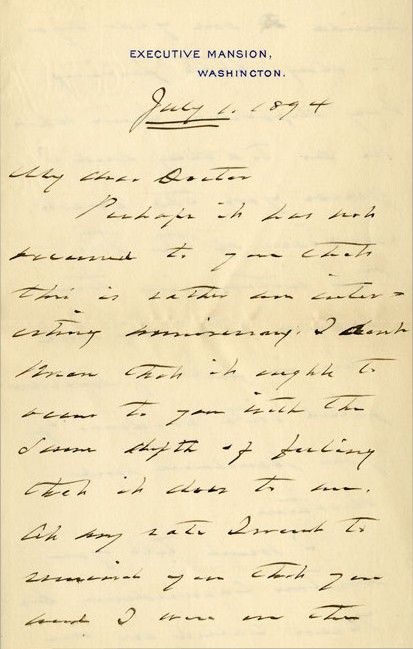 EXECUTIVE MANSION,
WASHINGTON.
July 1. 1894
My dear Doctor
Perhaps it has not
occurred to you that
this is rather an inter-
esting anniversary. I don't
know that it ought to
occur to you with the
same depth of feeling
that it does to me.
At any rate I want to
remind you that you
and I were on the